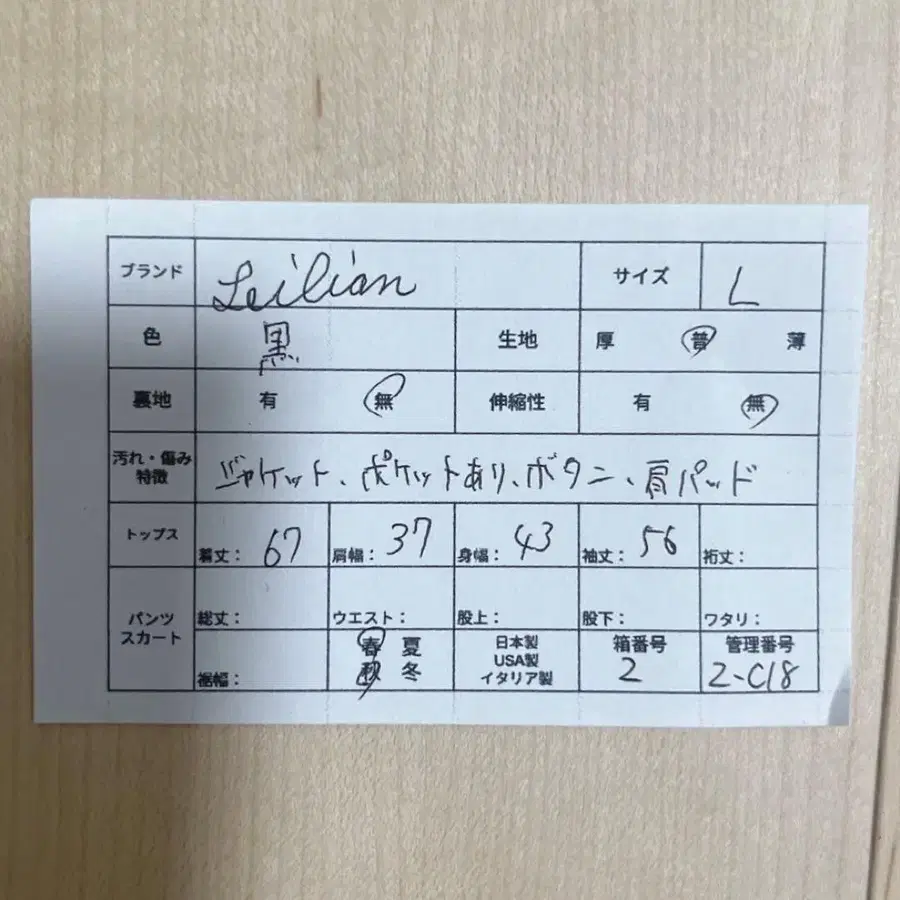 ブランド Leilian サイズ L
色 黒 生地 厚 普 薄
裏地 有 無 伸縮性 有 無
汚れ・傷み
特徴 ジャケット、ポケットあり、ボタン、肩パッド
トップス 着丈: 67 肩幅: 37 身幅: 43 袖丈: 56 裄丈:
パンツ
スカート 総丈: ウエスト: 股上: 股下: ワタリ:
裾幅: 春 夏
秋 冬
日本製
USA製
イタリア製
箱番号
2
管理番号
2-C18